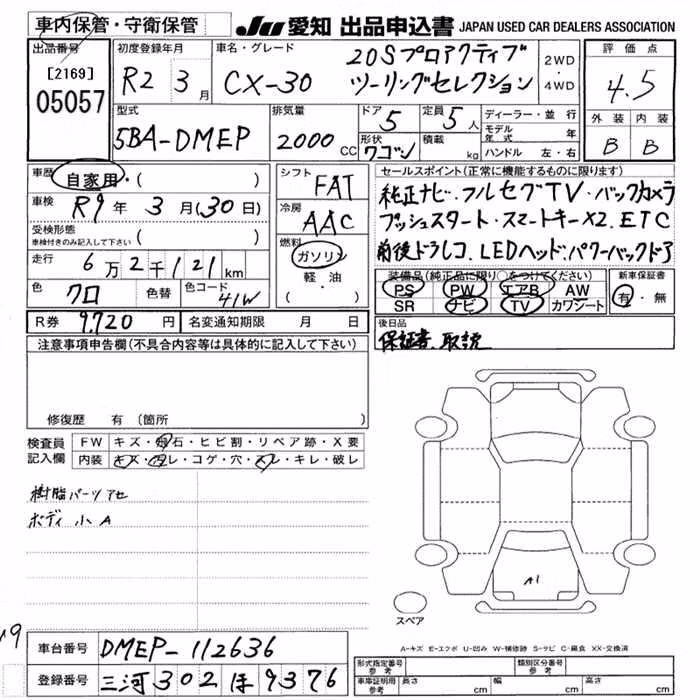 車内保管・守衛保管
JU 愛知 出品申込書 JAPAN USED CAR DEALERS ASSOCIATION
出品番号 [2169] 05057
初度登録年月 R2 3月
車名・グレード CX-30 20Sプロアクティブ ツーリングセレクション
2WD・4WD
評価点 4.5
外装 内装
B B
型式 5BA-DMEP
排気量 2000 CC
ドア 5 形状 ワゴン
定員 5人 積載 kg
ディーラー・並行
モデル年式 年
ハンドル 左・右
車歴 自家用・( )
車検 R9年 3月(30日)
受検形態 車検付きのみ記入して下さい ( )
走行 6万2千121km
色 クロ 色替 色コード 41W
シフト FAT
冷房 AAC
燃料 ガソリン 軽油 ( ・ )
セールスポイント(正常に機能するものに限ります)
純正ナビ・フルセグTV・バックカメラ
プッシュスタート・スマートキー×2. ETC
前後ドラレコ. LEDヘッド. パワーバックドア
装備品(純正品に限り○をつけてください)
PS PW エアB AW
SR ナビ TV カワシート
新車保証書
有・無
R券 9,720円 名変通知期限 月 日
後日品
保証書. 取説
注意事項申告欄(不具合内容等は具体的に記入して下さい)
修復歴 有 (箇所 )
検査員記入欄
FW キズ・飛石・ヒビ割・リペア跡・X要
内装 キズ・汚レ・コゲ・穴・スレ・キレ・破レ
樹脂パーツアセ
ボディ 小A
A1
スペア
A-キズ E-エクボ U-凹み W-補修跡 S-サビ C-腐食 XX-交換済
車台番号 DMEP-112636
登録番号 三河 302 ほ 9376
形式指定番号 参考 類別区分番号 参考
車庫証明用 参考 長さ cm 幅 cm 高さ cm